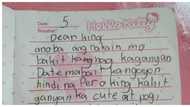 Date: 5 Hello Kitty
Dear king
ano ba ang nakain mo
bakit kang nag kaganyan
Date mabait ka ngayon
hindi na pero king kahit
ganyan ka cute at pogi